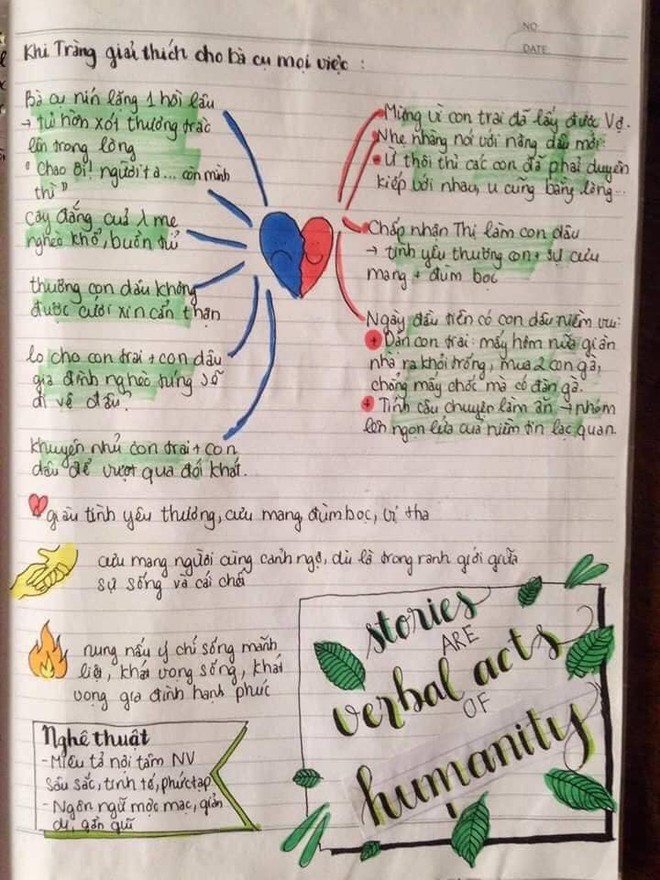 NO
DATE
Khi Tràng giải thích cho bà cụ mọi việc :
Bà cụ nín lặng 1 hồi lâu
→ tủi hờn xót thương trắc
lên trong lòng
"Chao ôi! người ta... còn mình
thì"
cay đắng của 1 mẹ
nghèo khổ, buồn tủi
thương con dâu không
được cưới xin cẩn thận
lo cho con trai + con dâu
gia đình nghèo túng sẽ
đi về đâu?
khuyên nhủ con trai + con
dâu để vượt qua đói khát.
Mừng vì con trai đã lấy được Vợ.
Nhẹ nhàng nói với nàng dâu mới:
Ừ thôi thì các con đã phải duyên
kiếp với nhau, u cũng bằng lòng...
Chấp nhận Thị làm con dâu
→ tình yêu thương con + sự cưu
mang + đùm bọc
Ngày đầu tiên có con dâu niềm vui:
+ Dặn con trai: mấy hôm nữa giăn
nhà ra khoảng trống, mua 2 con gà,
chẳng mấy chốc mà có đàn gà.
+ Tính câu chuyện làm ăn → nhóm
lên ngọn lửa của niềm tin lạc quan.
giàu tình yêu thương, cưu mang đùm bọc, vị tha
cưu mang người cùng cảnh ngộ, dù là trong ranh giới giữa
sự sống và cái chết
nung nấu ý chí sống mãnh
liệt, khát vọng sống, khát
vọng gia đình hạnh phúc
Nghệ thuật
- Miêu tả nội tâm NV
sâu sắc, tinh tế, phức tạp
- Ngôn ngữ mộc mạc, giản
dị, gần gũi
stories
ARE
verbal acts
OF
humanity